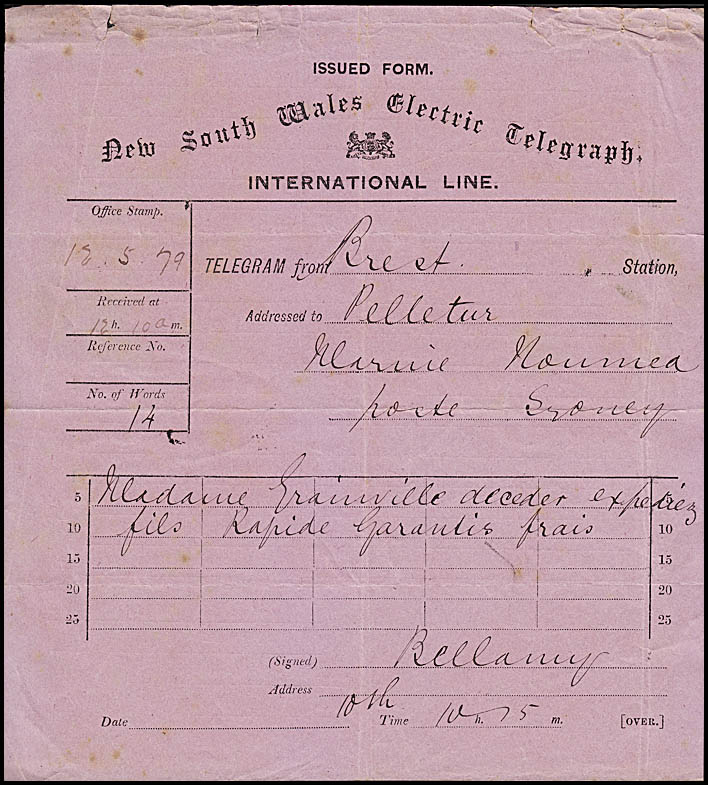 ISSUED FORM.
New South Wales Electric Telegraph.
INTERNATIONAL LINE.
Office Stamp.
12.5.79
Received at
12h. 10am.
Reference No.
No. of Words
14
TELEGRAM from Brest. Station,
Addressed to Pelletur
Marine Noumea
poste Sydney
5 Madame Grainville deceder expediez 5
10 fils Rapide Garantis frais 10
15 15
20 20
25 25
(Signed) Bellamy
Address
Date 10th Time 10 h. 15 m. [OVER.]